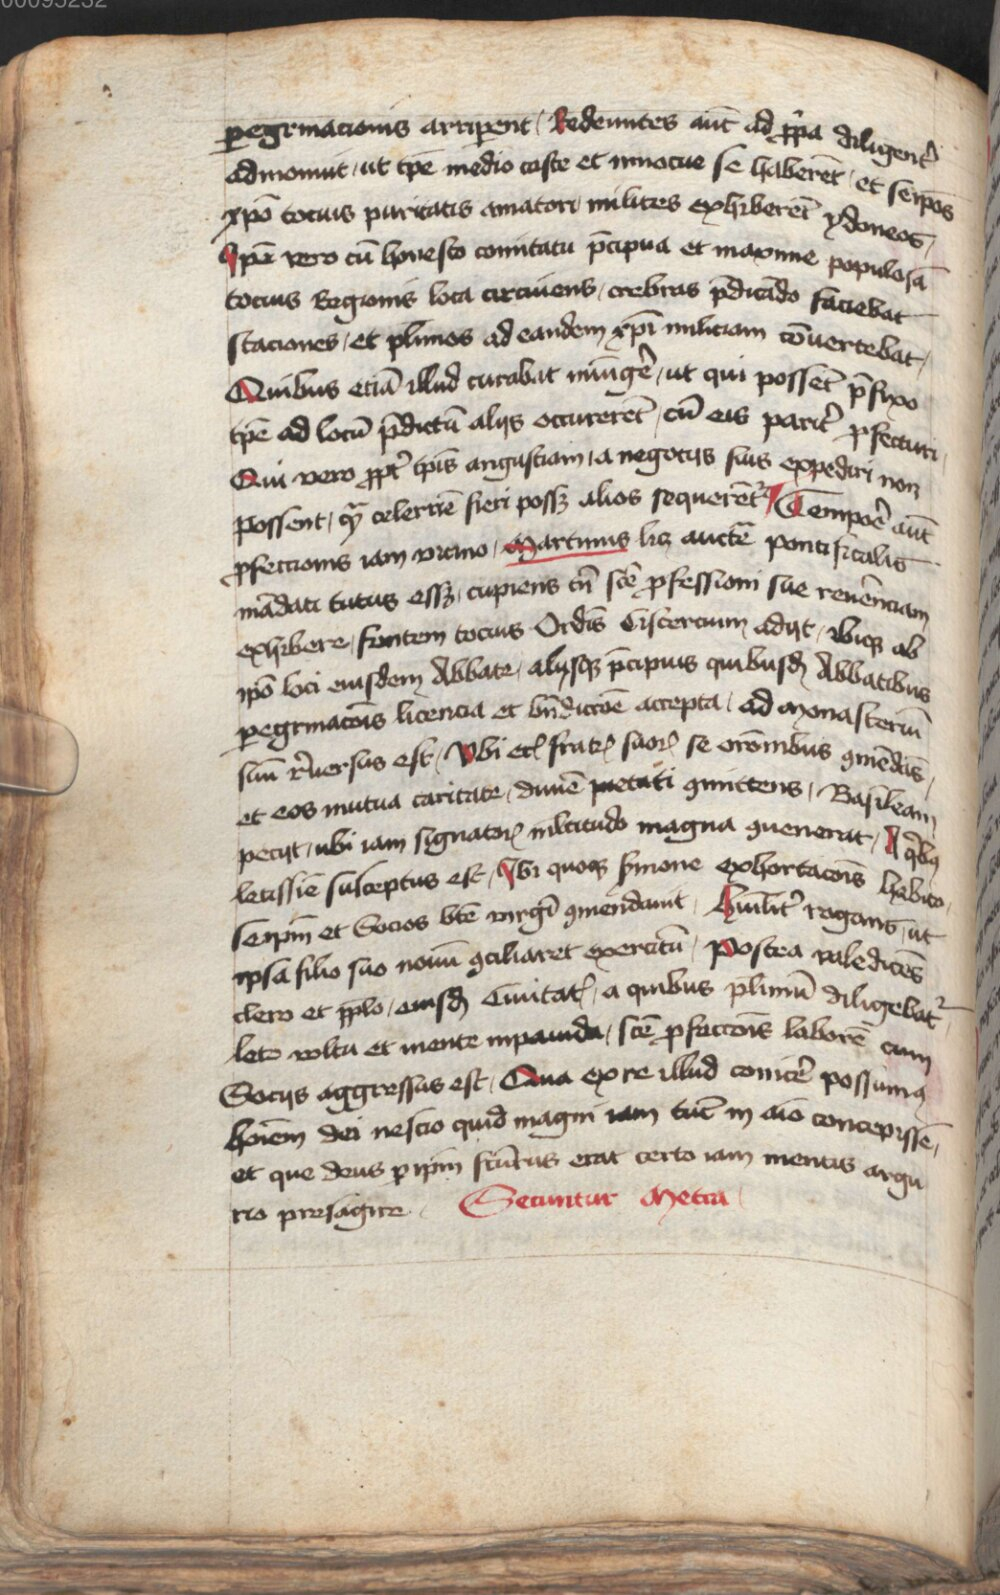 00095252
pegrinacionis arriperent / Redeuntes aūt ad ꝓp̄a diligent᷑
admonuit / ut tp̄e medio caste et innocue se haberēt / et seip̄os
xp̄o tocius puritatis amatori milites exhiberēt ydoneos /
Ip̄e vero cū honesto comitatu p̄cipua et maxime populosa
tocius Regionis loca circuiens / crebras p̄dicādo faciebat
staciones / et plurimos ad eandem xp̄i miliciam cōuertebat /
Quibus etiā illud curabat iniūgē᷑ / ut qui possēt p̄fixo
tp̄e ad locū p̄dictū alijs occurerēt / cū eis parit᷑ ꝓfecturi
Qui vero ꝓpt᷑ tp̄is angustiam / a negotijs suis expediri non
possent / qͣ celerriē fieri possꝫ alios sequerēt᷑ / Tempoē᷑ aūt
ꝓfectionis iam vicino / Martinus licꝫ auctē pontificalis
mādati tutus essꝫ / cupiens tn̄ scē ꝓfessioni sue reuēnciam
exhibere / fontem tocius Ordīs Cistercium adijt / Ibiqꝫ ab
ip̄o loci eiusdem Abbate / alijsqꝫ p̄cipuis quibusdꝫ Abbatibus
pegrinacōis licencia et bn̄dictōe accepta / ad Monasteriū
suū r᷑uersus est / Vbi etꝫ fratrꝫ suorꝫ se orōnibus ꝯmēdās /
et eos mutua caritate / diuiē pietati ꝯmittens / Basileam
pecijt / ubi iam signatorꝫ mltitudo magna ꝯuenerat / A qͥbꝯ
letissiē susceptus est / Ibi quoqꝫ sermone exhortacōis habito /
seip̄m et Socios btē virgī ꝯmendauit / humilit᷑ rogans / ut
ipsa filio suo nouū ꝯciliaret exercitū / Postea valedicēs
clero et pp̄lo / eiusdꝫ Ciuitatꝭ / a quibus plimū diligebat᷑ /
leto voltu et mente inpauida / scē ꝓfectōis laborē cum
Socijs aggressus est / Qua ex re illud conicē᷑ possumꝯ
hoīem dei nescio quid magni iam tūc in aīo concepisse /
et que deus p ip̄m scūrus erat certo iam mentis argu
rio presagire / Secuntur Metra /